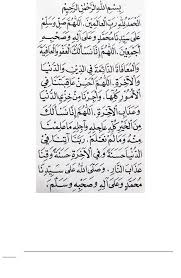 بِسْمِ اللهِ الرَّحْمٰنِ الرَّحِيْمِ
اَلْحَمْدُ لِلّٰهِ رَبِّ الْعَالَمِيْنَ. اَللّٰهُمَّ صَلِّ وَسَلِّمْ
عَلَى سَيِّدِنَا مُحَمَّدٍ وَعَلَى اٰلِهِ وَصَحْبِهِ
اَجْمَعِيْنَ. اَللّٰهُمَّ اِنَّا نَسْأَلُكَ الْعَفْوَ وَالْعَافِيَةَ
وَالْمُعَافَاةَ الدَّائِمَةَ فِى الدِّيْنِ وَالدُّنْيَا
وَالْاٰخِرَةِ. اَللّٰهُمَّ اَحْسِنْ عَاقِبَتَنَا فِى
الْاُمُوْرِ كُلِّهَا. وَاَجِرْنَا مِنْ خِزْيِ الدُّنْيَا
وَعَذَابِ الْاٰخِرَةِ. اَللّٰهُمَّ اِنَّا نَسْأَلُكَ
مِنَ الْخَيْرِ كُلِّهِ عَاجِلِهِ وَاٰجِلِهِ مَا عَلِمْنَا
مِنْهُ وَمَا لَمْ نَعْلَمْ. رَبَّنَا اٰتِنَا فِى
الدُّنْيَا حَسَنَةً وَفِى الْاٰخِرَةِ حَسَنَةً وَقِنَا
عَذَابَ النَّارِ. وَصَلَّى اللهُ عَلَى سَيِّدِنَا
مُحَمَّدٍ وَعَلَى اٰلِهِ وَصَحْبِهِ وَسَلَّمَ.